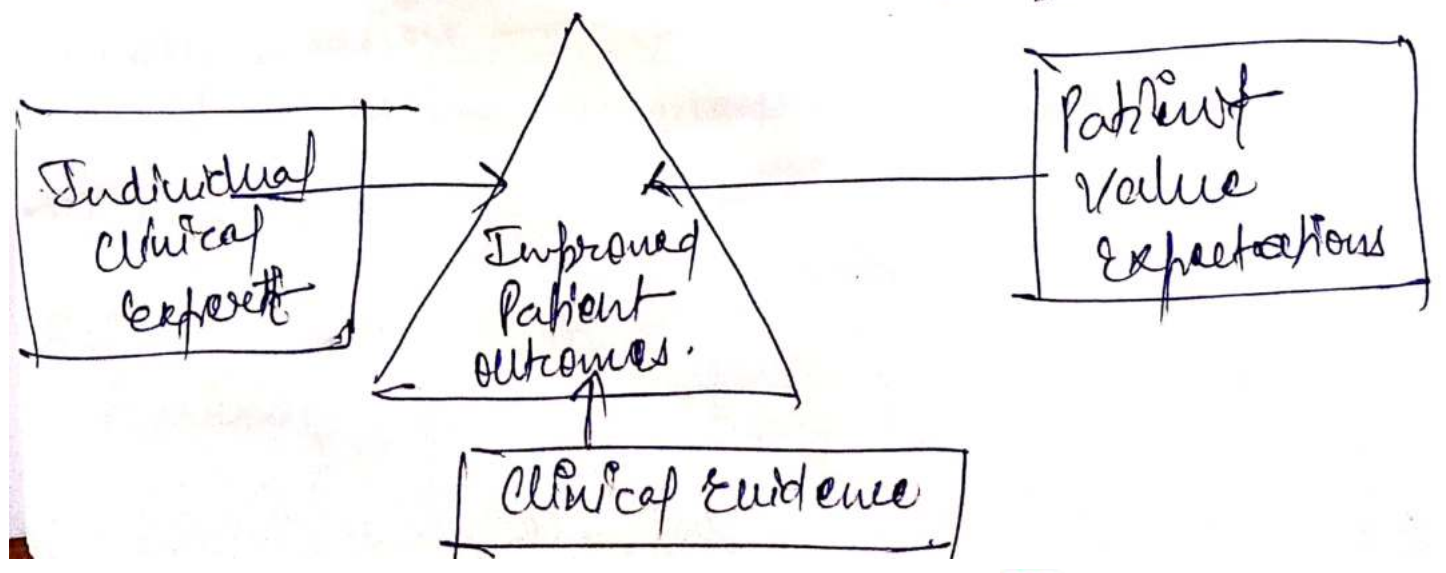 Individual
Clinical
Expert
Improved
Patient
outcomes.
Patient
Value
Expectations
Clinical Evidence